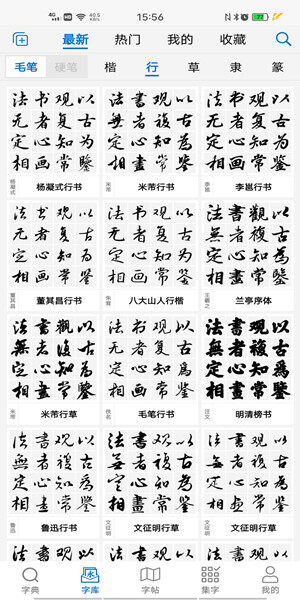 4G HD 40.5 K/s 15:56
最新 热门 我的 收藏
毛笔 硬笔 楷 行 草 隶 篆
法书观以
无者复古
定心知为
相画常鉴
杨凝式
杨凝式行书
法书观以
无者复古
定心知为
相画常鉴
米芾
米芾行书
法书观以
无者复古
定心知为
相画常鉴
李邕
李邕行书
法书观以
无者复古
定心知为
相画常鉴
董其昌
董其昌行书
法书观以
无者复古
定心知为
相画常鉴
朱耷
八大山人行楷
法書觀以
無者複古
定心知為
相畫常鑒
王羲之
兰亭序体
法書觀以
無者復古
定心知為
相畫常鑒
米芾
米芾行草
法书观以
无者复古
定心知为
相画常鉴
佚名
毛笔行书
法書觀以
無者複古
定心知為
相畫常鑒
汪文
明清榜书
法書观以
無者複古
定心知為
相畫常鑒
鲁迅
鲁迅行书
法書觀以
無者複古
定心知為
相畫常鑒
文征明
文征明行草
法書观以
無者復古
定心知為
相畫常鑒
文征明
文征明行草
字典 字库 字帖 集字 我的